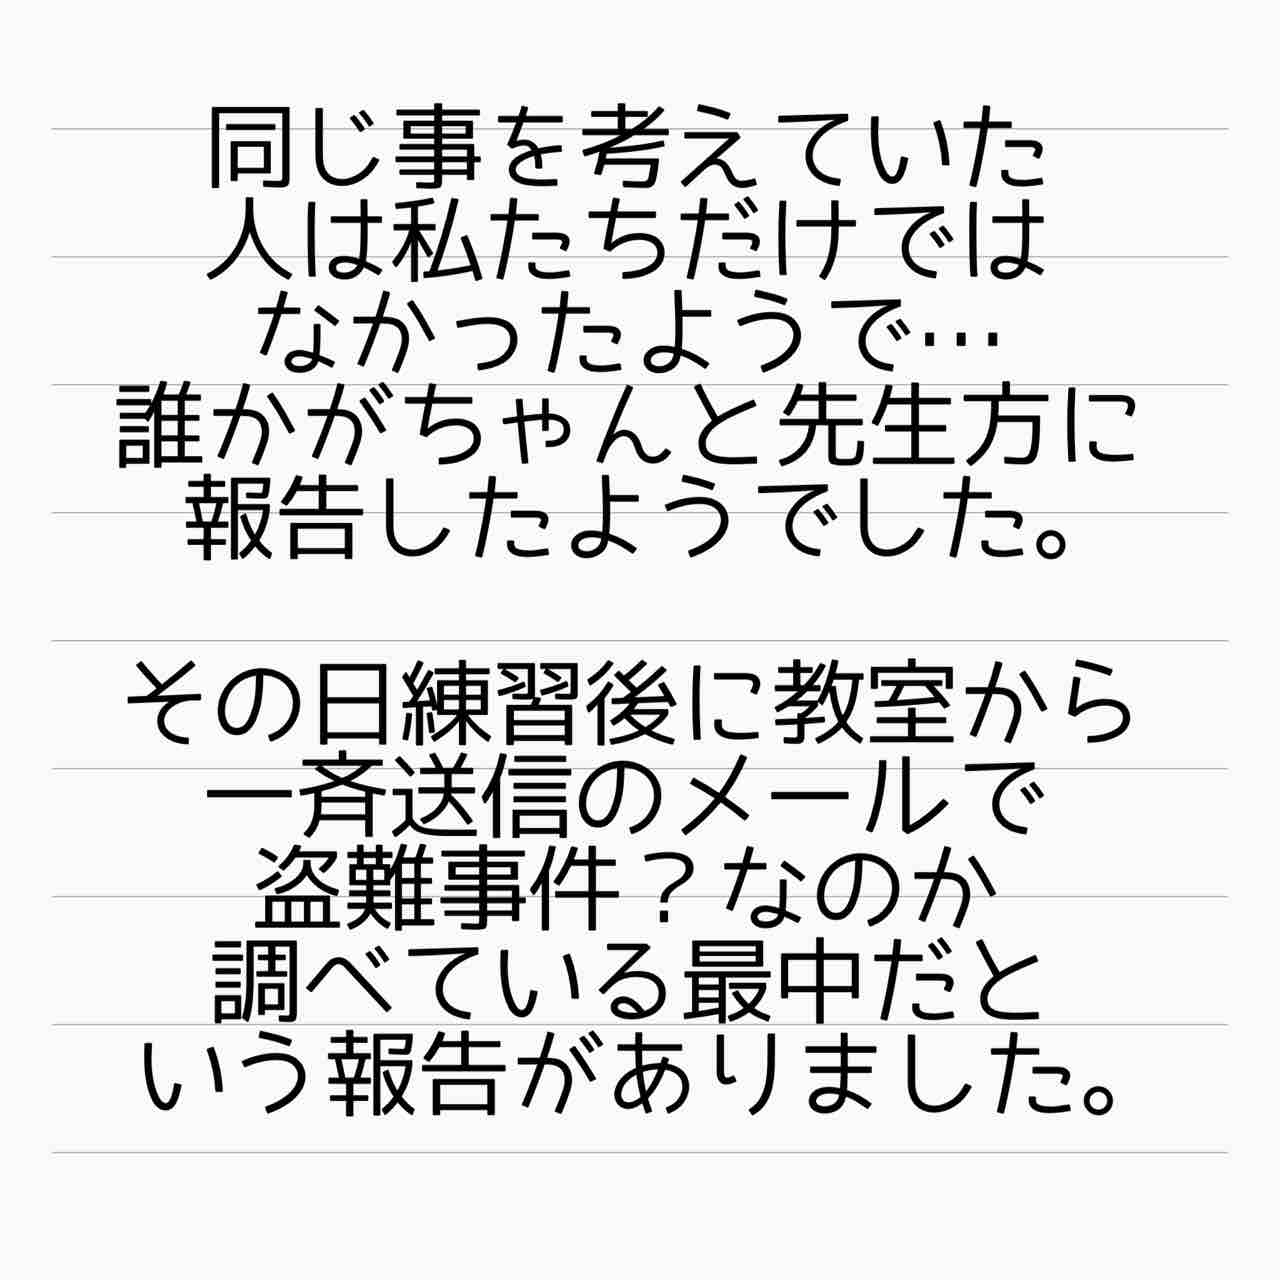 同じ事を考えていた
人は私たちだけでは
なかったようで…
誰かがちゃんと先生方に
報告したようでした。
その日練習後に教室から
一斉送信のメールで
盗難事件？なのか
調べている最中だと
いう報告がありました。